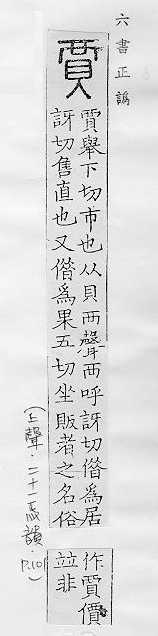 六書正譌
賈
賈舉下切市也从貝襾聲襾呼訝切借爲居
訝切售直也又借爲果五切坐販者之名俗
作賈價
竝非
(上聲·二十一馬韻·P.101)